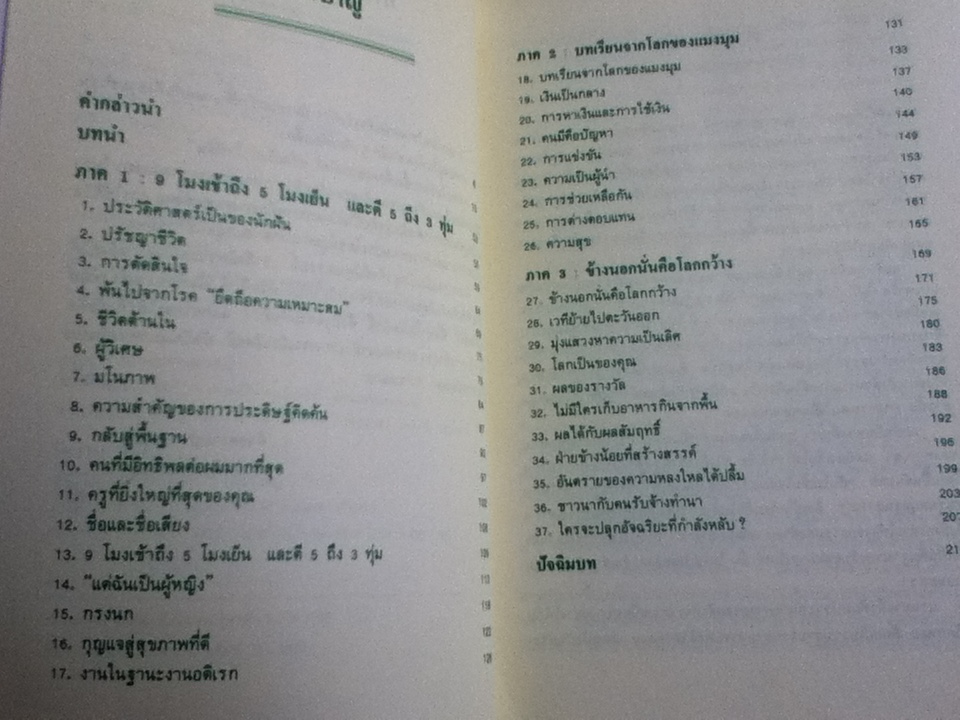 คำกล่าวนำ
บทนำ
ภาค 1 : 9 โมงเช้าถึง 5 โมงเย็น และตี 5 ถึง 3 ทุ่ม
1. ประวัติศาสตร์เป็นของนักฝัน
2. ปรัชญาชีวิต
3. การตัดสินใจ
4. พ้นไปจากโรค "ยึดถือความเหมาะสม"
5. ชีวิตด้านใน
6. ผู้วิเศษ
7. มโนภาพ
8. ความสำคัญของการประดิษฐ์คิดค้น
9. กลับสู่พื้นฐาน
10. คนที่มีอิทธิพลต่อผมมากที่สุด
11. ครูที่ยิ่งใหญ่ที่สุดของคุณ
12. ชื่อและชื่อเสียง
13. 9 โมงเช้าถึง 5 โมงเย็น และตี 5 ถึง 3 ทุ่ม
14. "แต่ฉันเป็นผู้หญิง"
15. กรงนก
16. กุญแจสู่สุขภาพที่ดี
17. งานในฐานะงานอดิเรก
ภาค 2 : บทเรียนจากโลกของแมงมุม 131
18. บทเรียนจากโลกของแมงมุม 133
19. เงินเป็นกลาง 137
20. การหาเงินและการใช้เงิน 140
21. คนมีคือปัญหา 144
22. การแข่งขัน 149
23. ความเป็นผู้นำ 153
24. การช่วยเหลือกัน 157
25. การต่างตอบแทน 161
26. ความสุข 165
ภาค 3 : ข้างนอกนั่นคือโลกกว้าง 169
27. ข้างนอกนั่นคือโลกกว้าง 171
28. เวทีย้ายไปตะวันออก 175
29. มุ่งแสวงหาความเป็นเลิศ 180
30. โลกเป็นของคุณ 183
31. ผลของรางวัล 186
32. ไม่มีใครเก็บอาหารกินจากพื้น 188
33. ผลได้กับผลสัมฤทธิ์ 192
34. ฝ่ายข้างน้อยที่สร้างสรรค์ 196
35. อันตรายของความหลงใหลได้ปลื้ม 199
36. ชาวนากับคนรับจ้างทำนา 203
37. ใครจะปลุกอัจฉริยะที่กำลังหลับ ? 207
ปัจฉิมบท